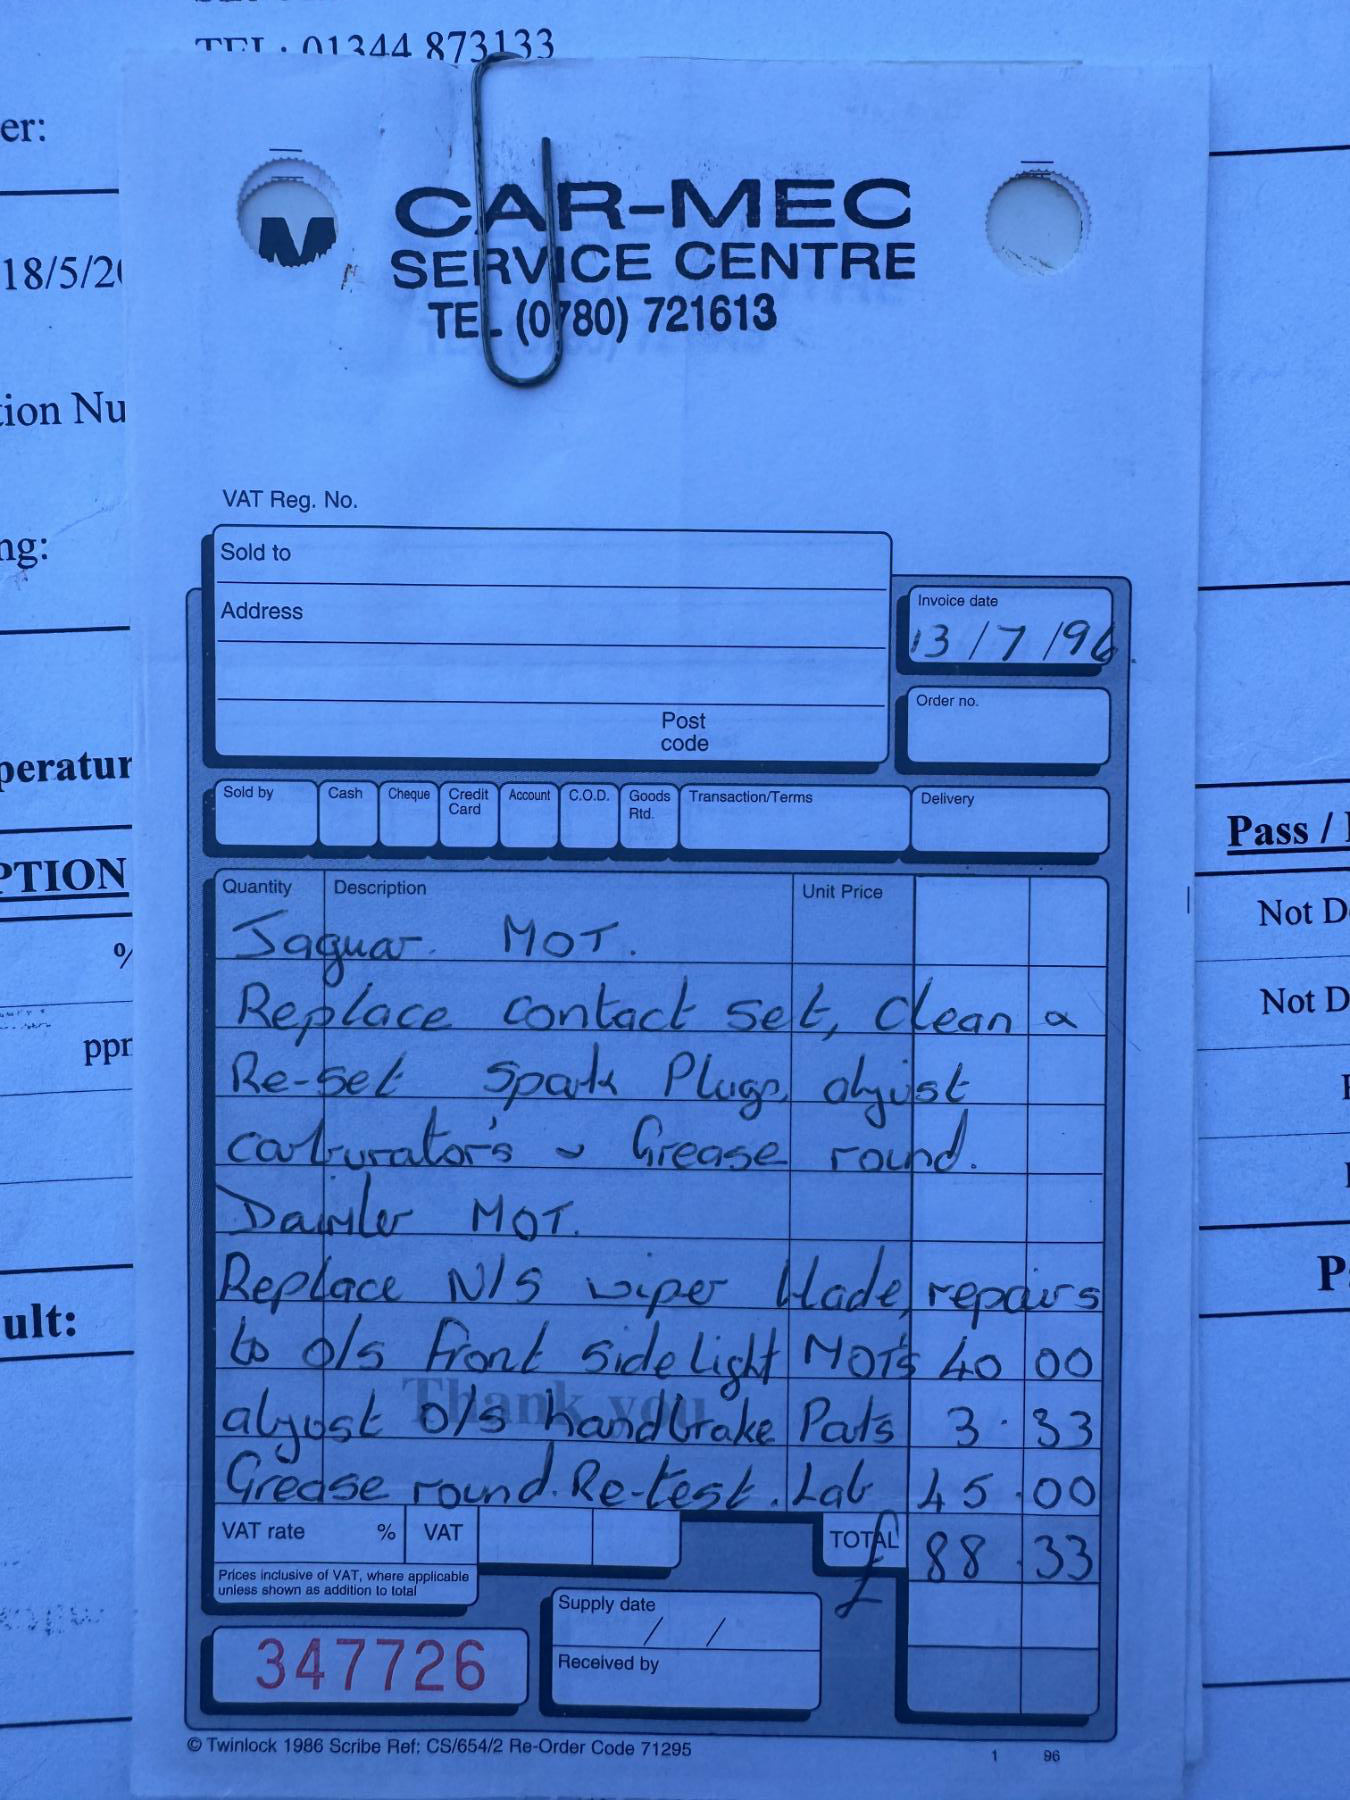 TEL: 01344 873133
er:
18/5/20
tion Nu
ng:
peratur
PTION
%
ppr
ult:
Pass /
Not D
Not D
P
CAR-MEC
SERVICE CENTRE
TEL (0780) 721613
VAT Reg. No.
Sold to
Address
Post
code
Invoice date
13/7/96
Order no.
Sold by Cash Cheque Credit Card Account C.O.D. Goods Rtd. Transaction/Terms Delivery
Quantity Description Unit Price
Jaguar. MOT.
Replace contact set, clean &
Re-set spark Plugs, adjust
carburator's & Grease round.
Daimler MOT.
Replace N/S wiper blade, repairs
to o/s front side light MOT's 40 00
Thank you
adjust o/s handbrake Parts 3.33
Grease round. Re-test. Lab 45.00
VAT rate % VAT
TOTAL £ 88.33
Prices inclusive of VAT, where applicable
unless shown as addition to total
Supply date / /
Received by
347726
© Twinlock 1986 Scribe Ref: CS/654/2 Re-Order Code 71295
1 96